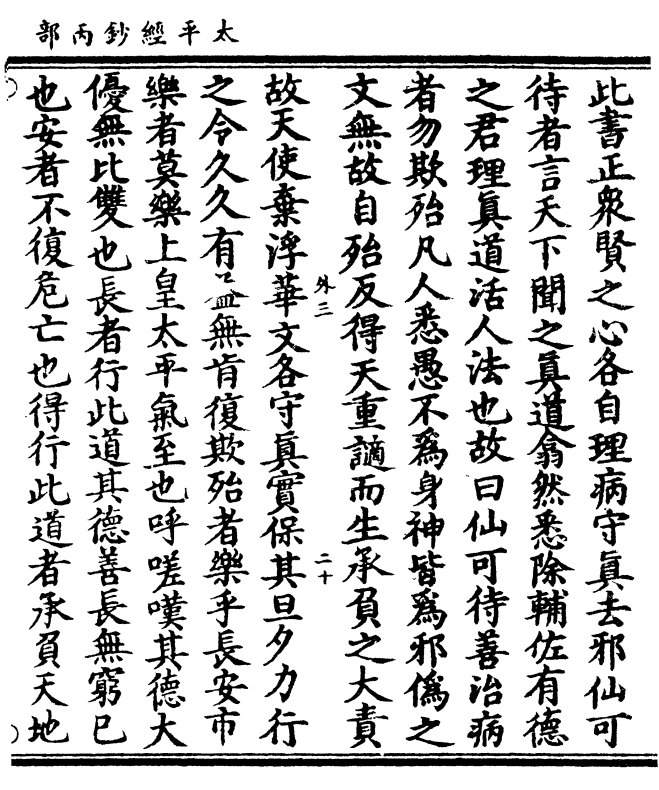 太平經鈔丙部
此書正衆賢之心各自理病守眞去邪仙可
待者言天下聞之眞道翕然悉除輔佐有德
之君理眞道活人法也故曰仙可待善治病
者勿欺殆凡人悉愚不爲身神皆爲邪僞之
文無故自殆反得天重讁而生承負之大責
故天使棄浮華文各守眞實保其旦夕力行
外三
二十
之令久久有益無肯復欺殆者樂乎長安市
樂者莫樂上皇太平氣至也呼嗟嘆其德大
優無比雙也長者行此道其德善長無窮已
也安者不復危亡也得行此道者承負天地